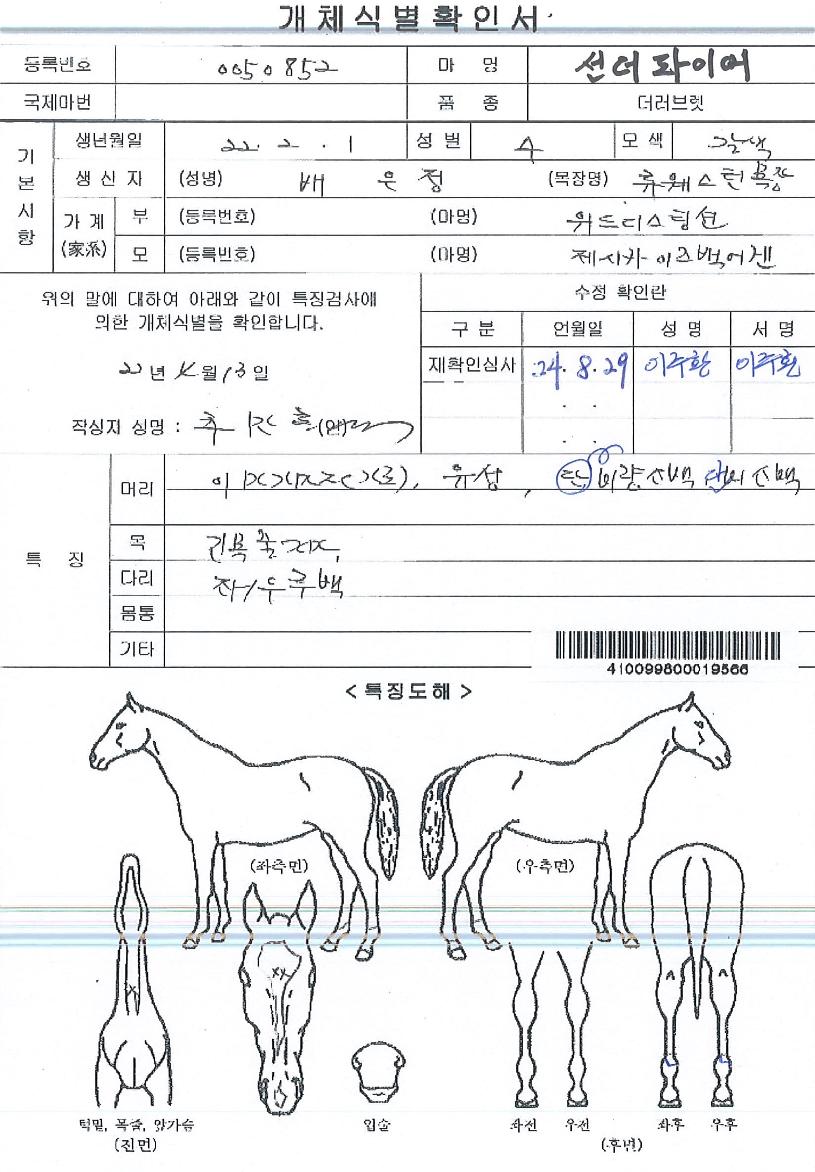 개체식별확인서
등록번호 0050852 마 명 선더파이어
국제마번 품 종 더러브렛
기본사항
생년월일 22. 2. 1 성 별 수 모 색 갈색
생 산 자 (성명) 배 은 정 (목장명) 류웨스턴목장
가 계 (家系) 부 (등록번호) (마명) 위드디스팅션
모 (등록번호) (마명) 제시카이즈백어겐
위의 말에 대하여 아래와 같이 특징검사에
의한 개체식별을 확인합니다.
22 년 월 13 일
작성자 성명 :
수정 확인란
구 분 언월일 성 명 서 명
재확인심사 24. 8. 29 이주환 이주환
특 징
머리 유성, 비량소백
목
다리 좌/우후백
몸통
기타
410099800019566
< 특징도해 >
(좌측면) (우측면)
턱밑, 목줄, 앞가슴 입술 좌전 우전 좌후 우후
(전면) (후변)